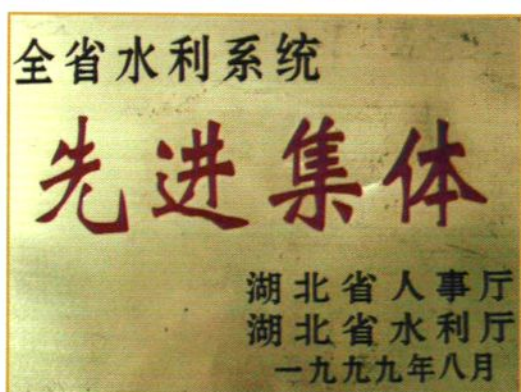 全省水利系统
先进集体
湖北省人事厅
湖北省水利厅
一九九九年八月